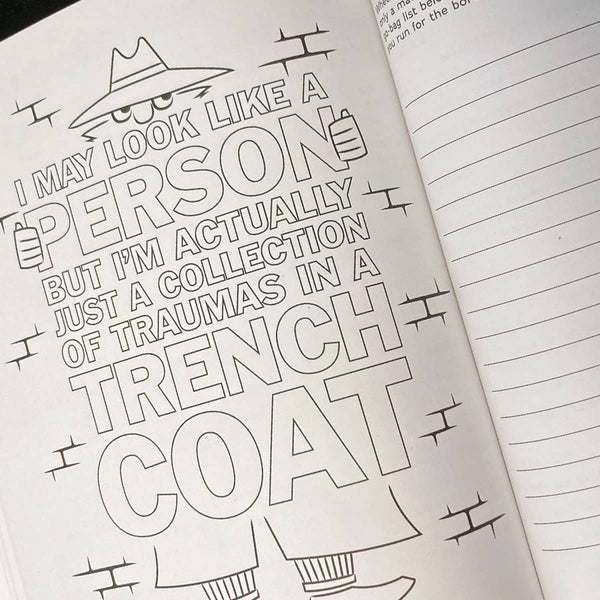 I MAY LOOK LIKE A
PERSON
BUT I'M ACTUALLY
JUST A COLLECTION
OF TRAUMAS IN A
TRENCH
COAT
only a ma
go-bag list befo
you run for the bo